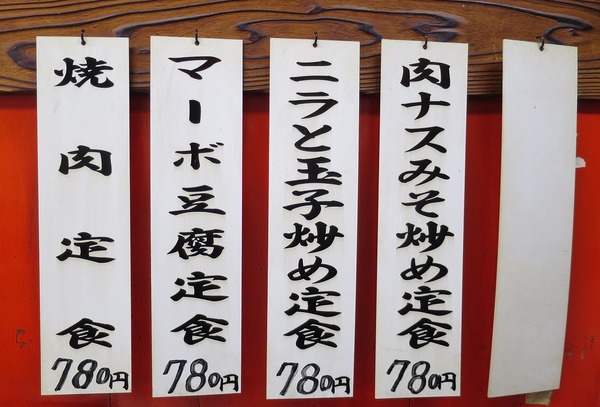 肉ナスみそ炒め定食
780円
ニラと玉子炒め定食
780円
マーボ豆腐定食
780円
焼肉定食
780円